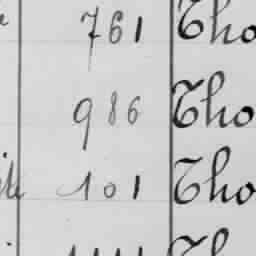 761 Tho
986 Tho
101 Tho